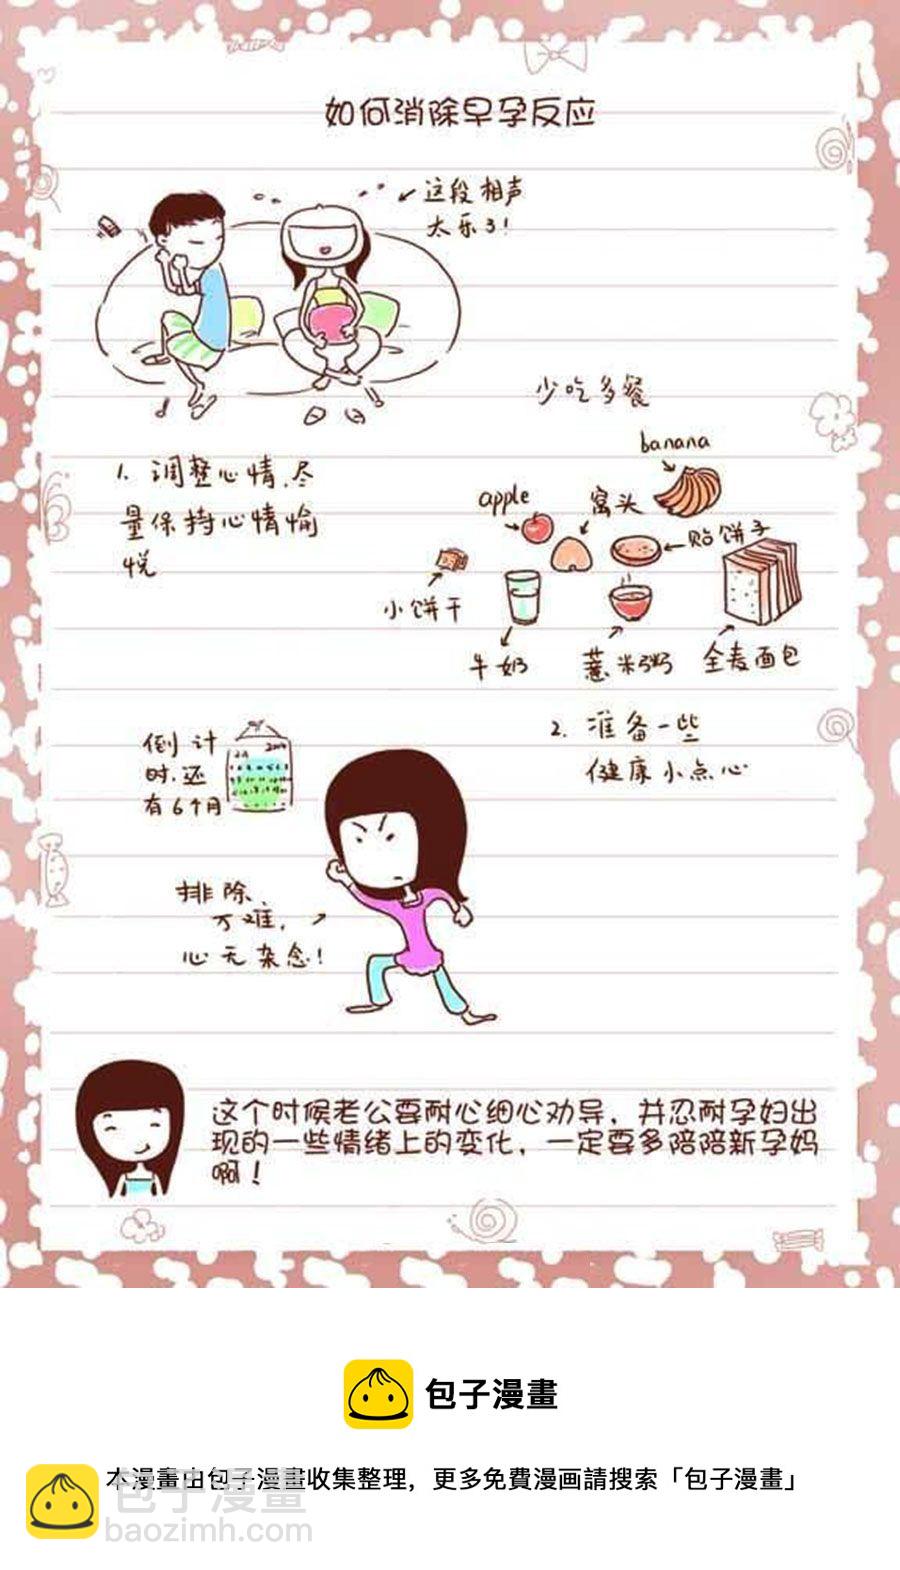 如何消除早孕反应
这段相声
太乐了!
少吃多餐
banana
apple
窝头
贴饼子
小饼干
牛奶
薏米粥
全麦面包
1. 调整心情,尽
量保持心情愉
悦
2. 准备一些
健康小点心
倒计
时,还
有6个月
排除
万难,
心无杂念!
这个时候老公要耐心细心劝导,并忍耐孕妇出
现的一些情绪上的变化,一定要多陪陪新孕妈
啊!
包子漫畫
本漫畫由包子漫畫收集整理,更多免費漫画請搜索「包子漫畫」
包子漫畫
baozimh.com